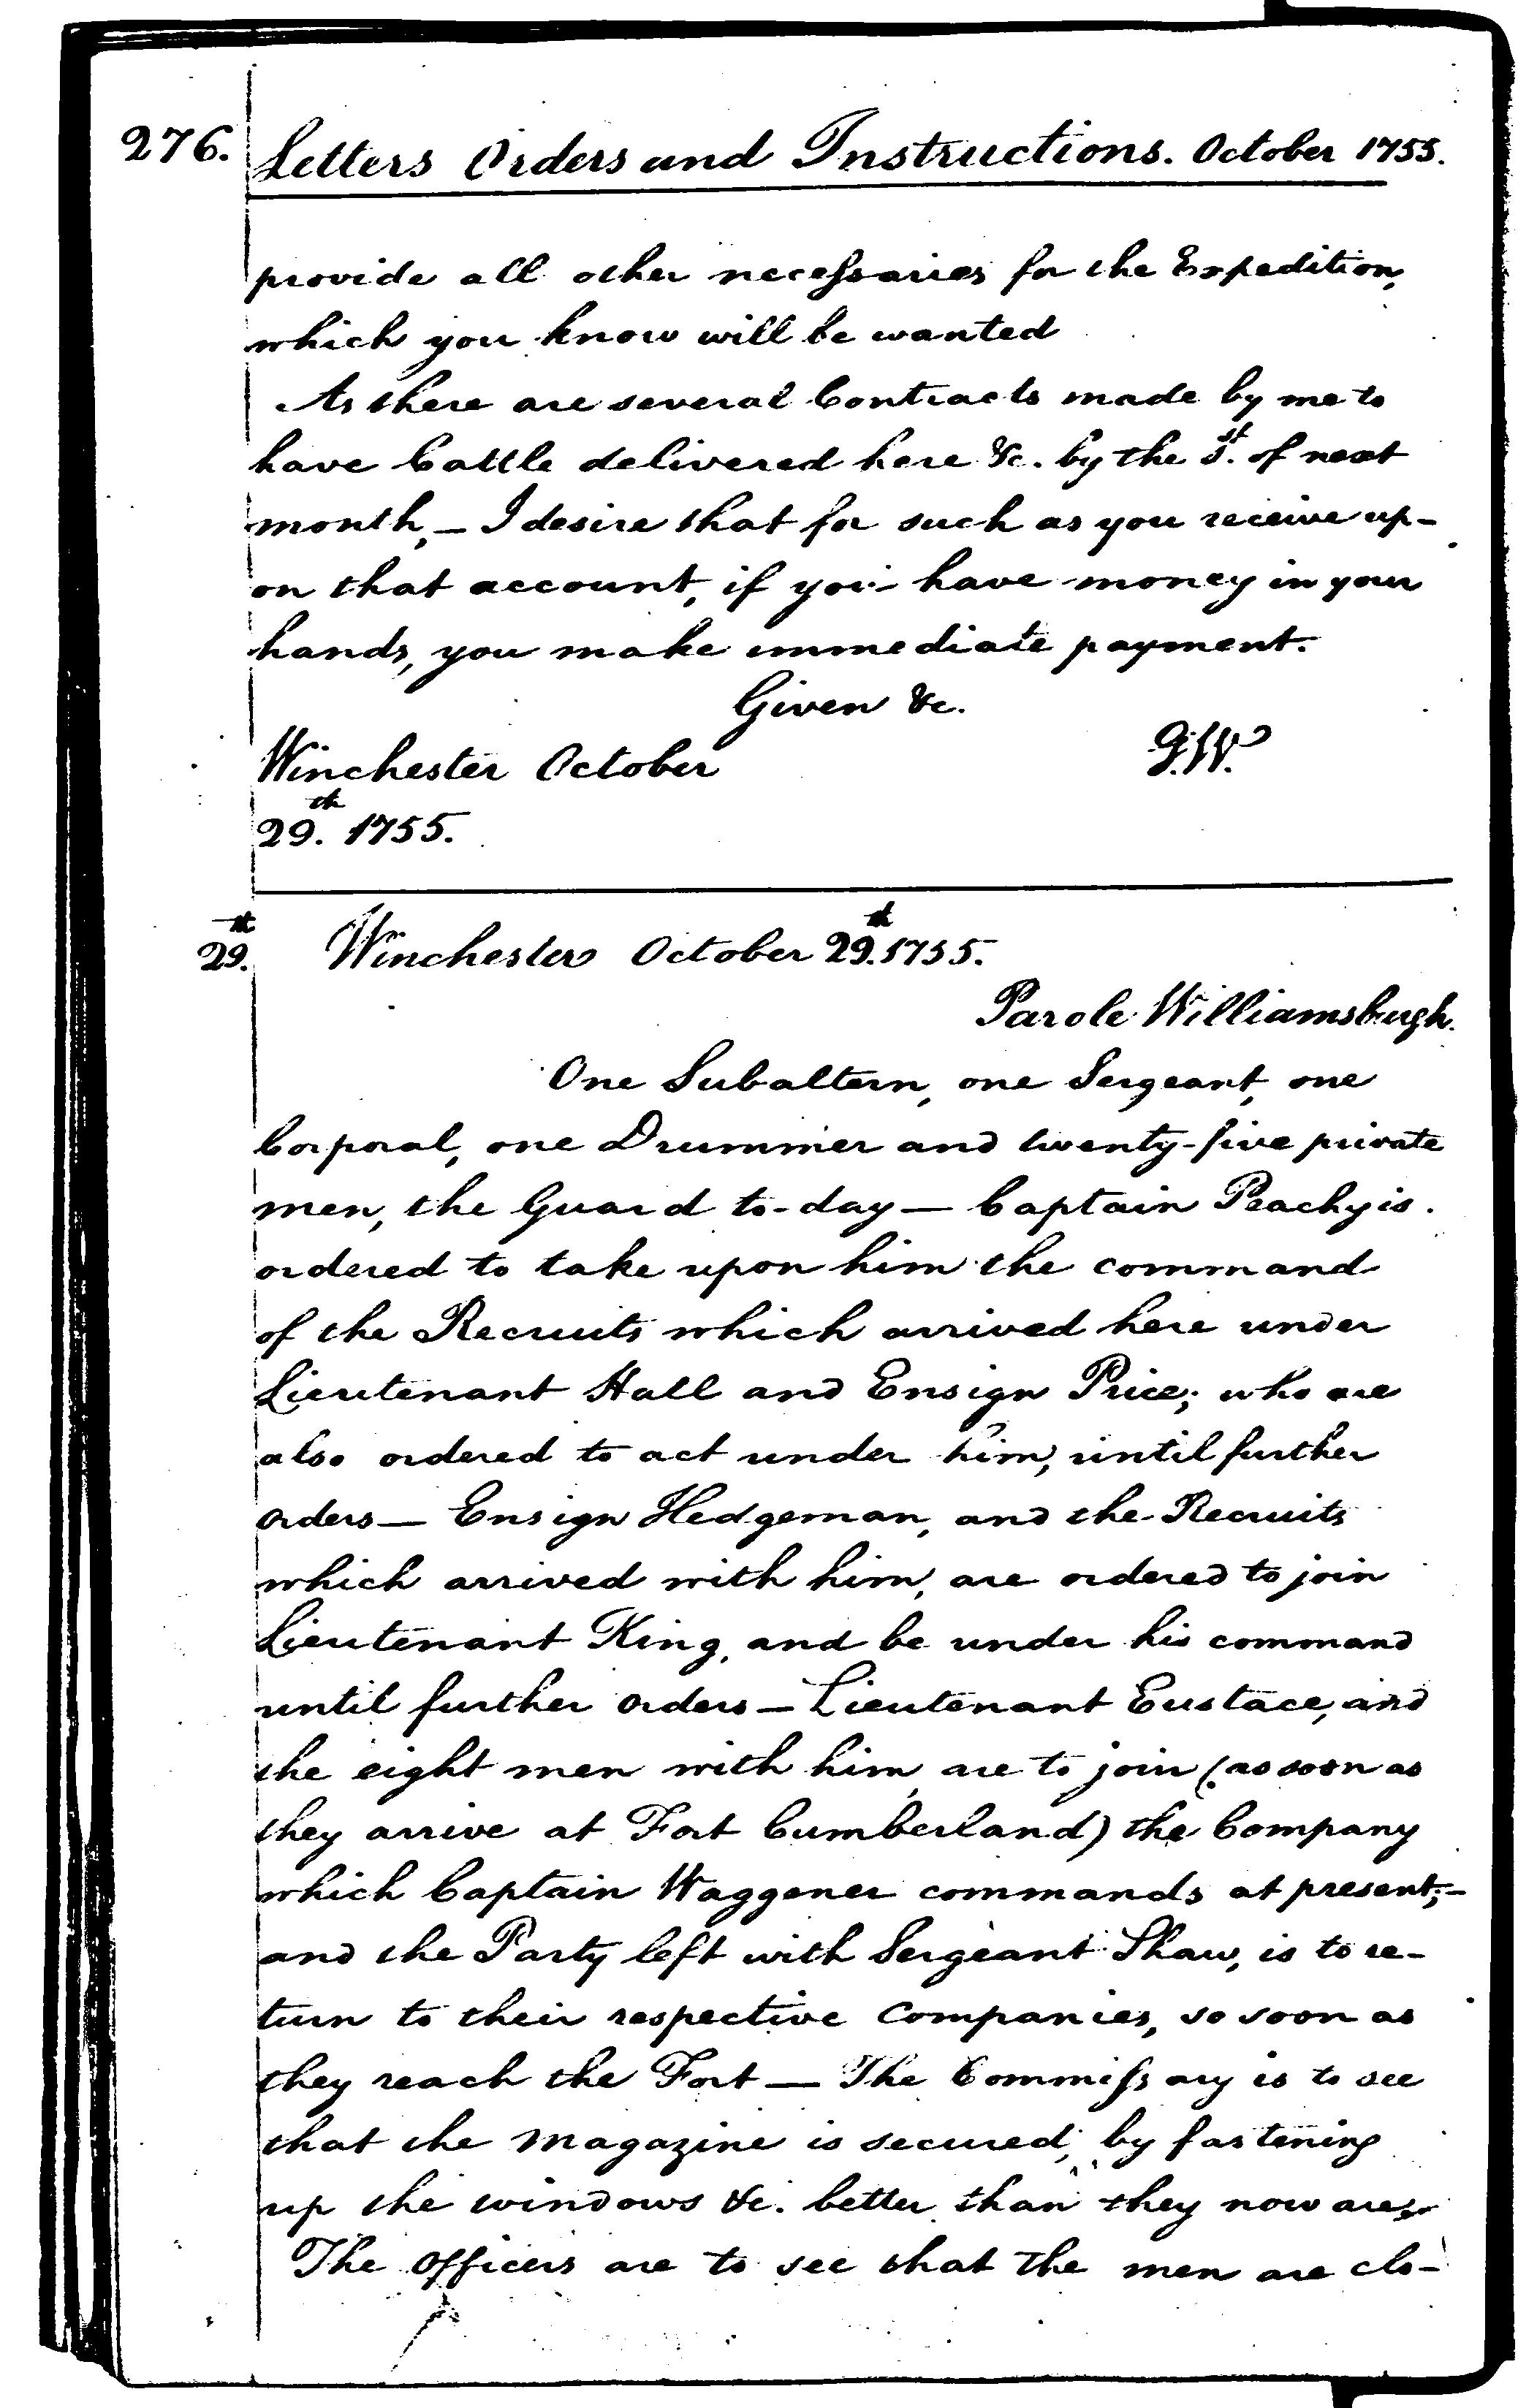 276. Letters Orders and Instructions. October 1755.
provide all other necessaries for the Expedition,
which you know will be wanted
As there are several Contracts made by me to
have Cattle delivered here &c. by the 1st. of next
month,— I desire that for such as you receive up-
on that account, if you have money in your
hands, you make immediate payment.
Given &c.
Winchester October G.W.
29.th 1755.
29.th Winchester October 29.th 1755.
Parole Williamsburgh.
One Subaltern, one Sergeant, one
Corporal, one Drummer and twenty-five private
men, the Guard to-day — Captain Peachy is
ordered to take upon him the command
of the Recruits which arrived here under
Lieutenant Hall and Ensign Price; who are
also ordered to act under him, until further
orders — Ensign Hedgeman, and the Recruits
which arrived with him, are ordered to join
Lieutenant King, and be under his command
until further orders — Lieutenant Eustace, and
the eight men with him, are to join (as soon as
they arrive at Fort Cumberland) the Company
which Captain Waggener commands at present;—
and the Party left with Sergeant Shaw, is to re-
turn to their respective Companies, so soon as
they reach the Fort — The Commissary is to see
that the magazine is secured, by fastening
up the windows &c. better than they now are,
The Officers are to see that the men are clo-